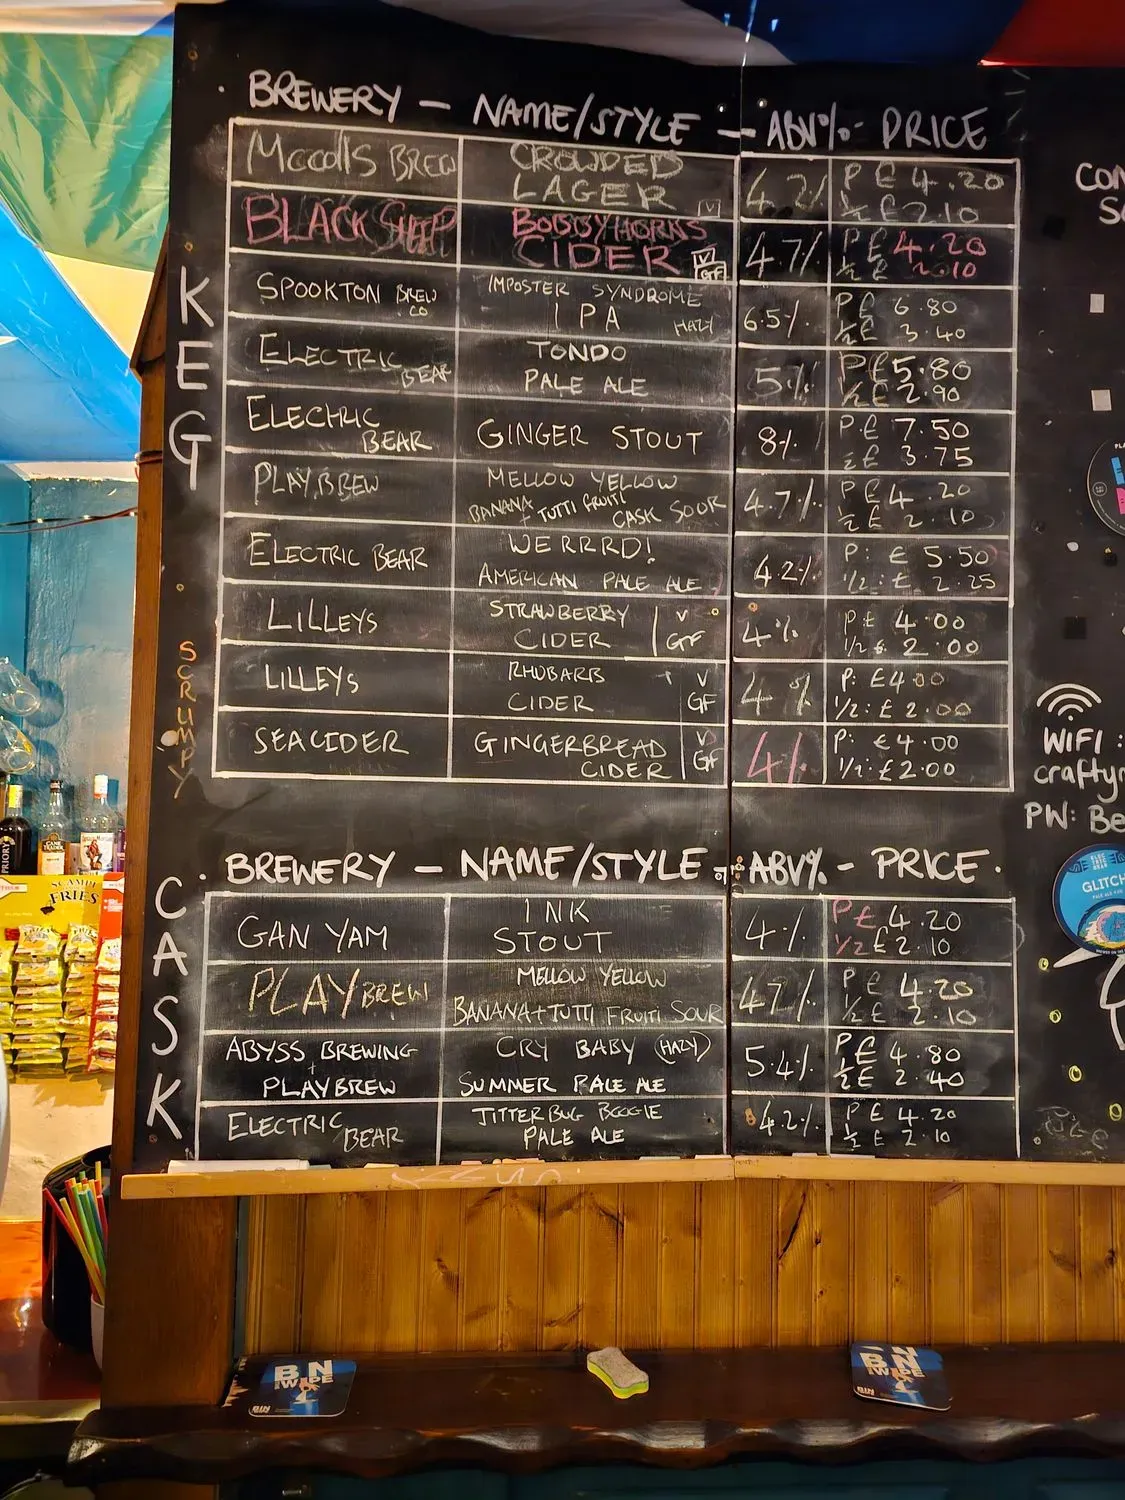 BREWERY - NAME/STYLE - ABV% - PRICE
KEG
McColls BREW CROWDED LAGER V 4.2% P £ 4.20 ½ £ 2.10
BLACK SHEEP BOBBY HORNS CIDER V GF 4.7% P £ 4.20 ½ £ 2.10
SPOOKTON BREW CO IMPOSTER SYNDROME IPA HAZY 6.5% P £ 6.80 ½ £ 3.40
ELECTRIC BEAR TONDO PALE ALE 5% P £ 5.80 ½ £ 2.90
ELECTRIC BEAR GINGER STOUT 8% P £ 7.50 ½ £ 3.75
PLAYBREW MELLOW YELLOW BANANA + TUTTI FRUITI CASK SOUR 4.7% P £ 4.20 ½ £ 2.10
ELECTRIC BEAR WERRRD! AMERICAN PALE ALE 4.2% P: £ 5.50 1/2: £ 2.25
SCRUMPY
LILLEYS STRAWBERRY CIDER V GF 4% P £ 4.00 1/2 £ 2.00
LILLEYS RHUBARB CIDER V GF 4% P: £4.00 1/2: £ 2.00
SEACIDER GINGERBREAD CIDER V GF 4% P: £4.00 1/2: £2.00
BREWERY - NAME/STYLE - ABV% - PRICE
CASK
GAN YAM INK STOUT 4% P £ 4.20 1/2 £ 2.10
PLAYBREW MELLOW YELLOW BANANA + TUTTI FRUITI SOUR 4.7% P £ 4.20 ½ £ 2.10
ABYSS BREWING + PLAYBREW CRY BABY (HAZY) SUMMER PALE ALE 5.4% P £ 4.80 ½ £ 2.40
ELECTRIC BEAR JITTERBUG BOOGIE PALE ALE 4.2% P £ 4.20 ½ £ 2.10
WIFI:
PW: Be
GLITCH
SCAMPI FRIES
BIN
BIN